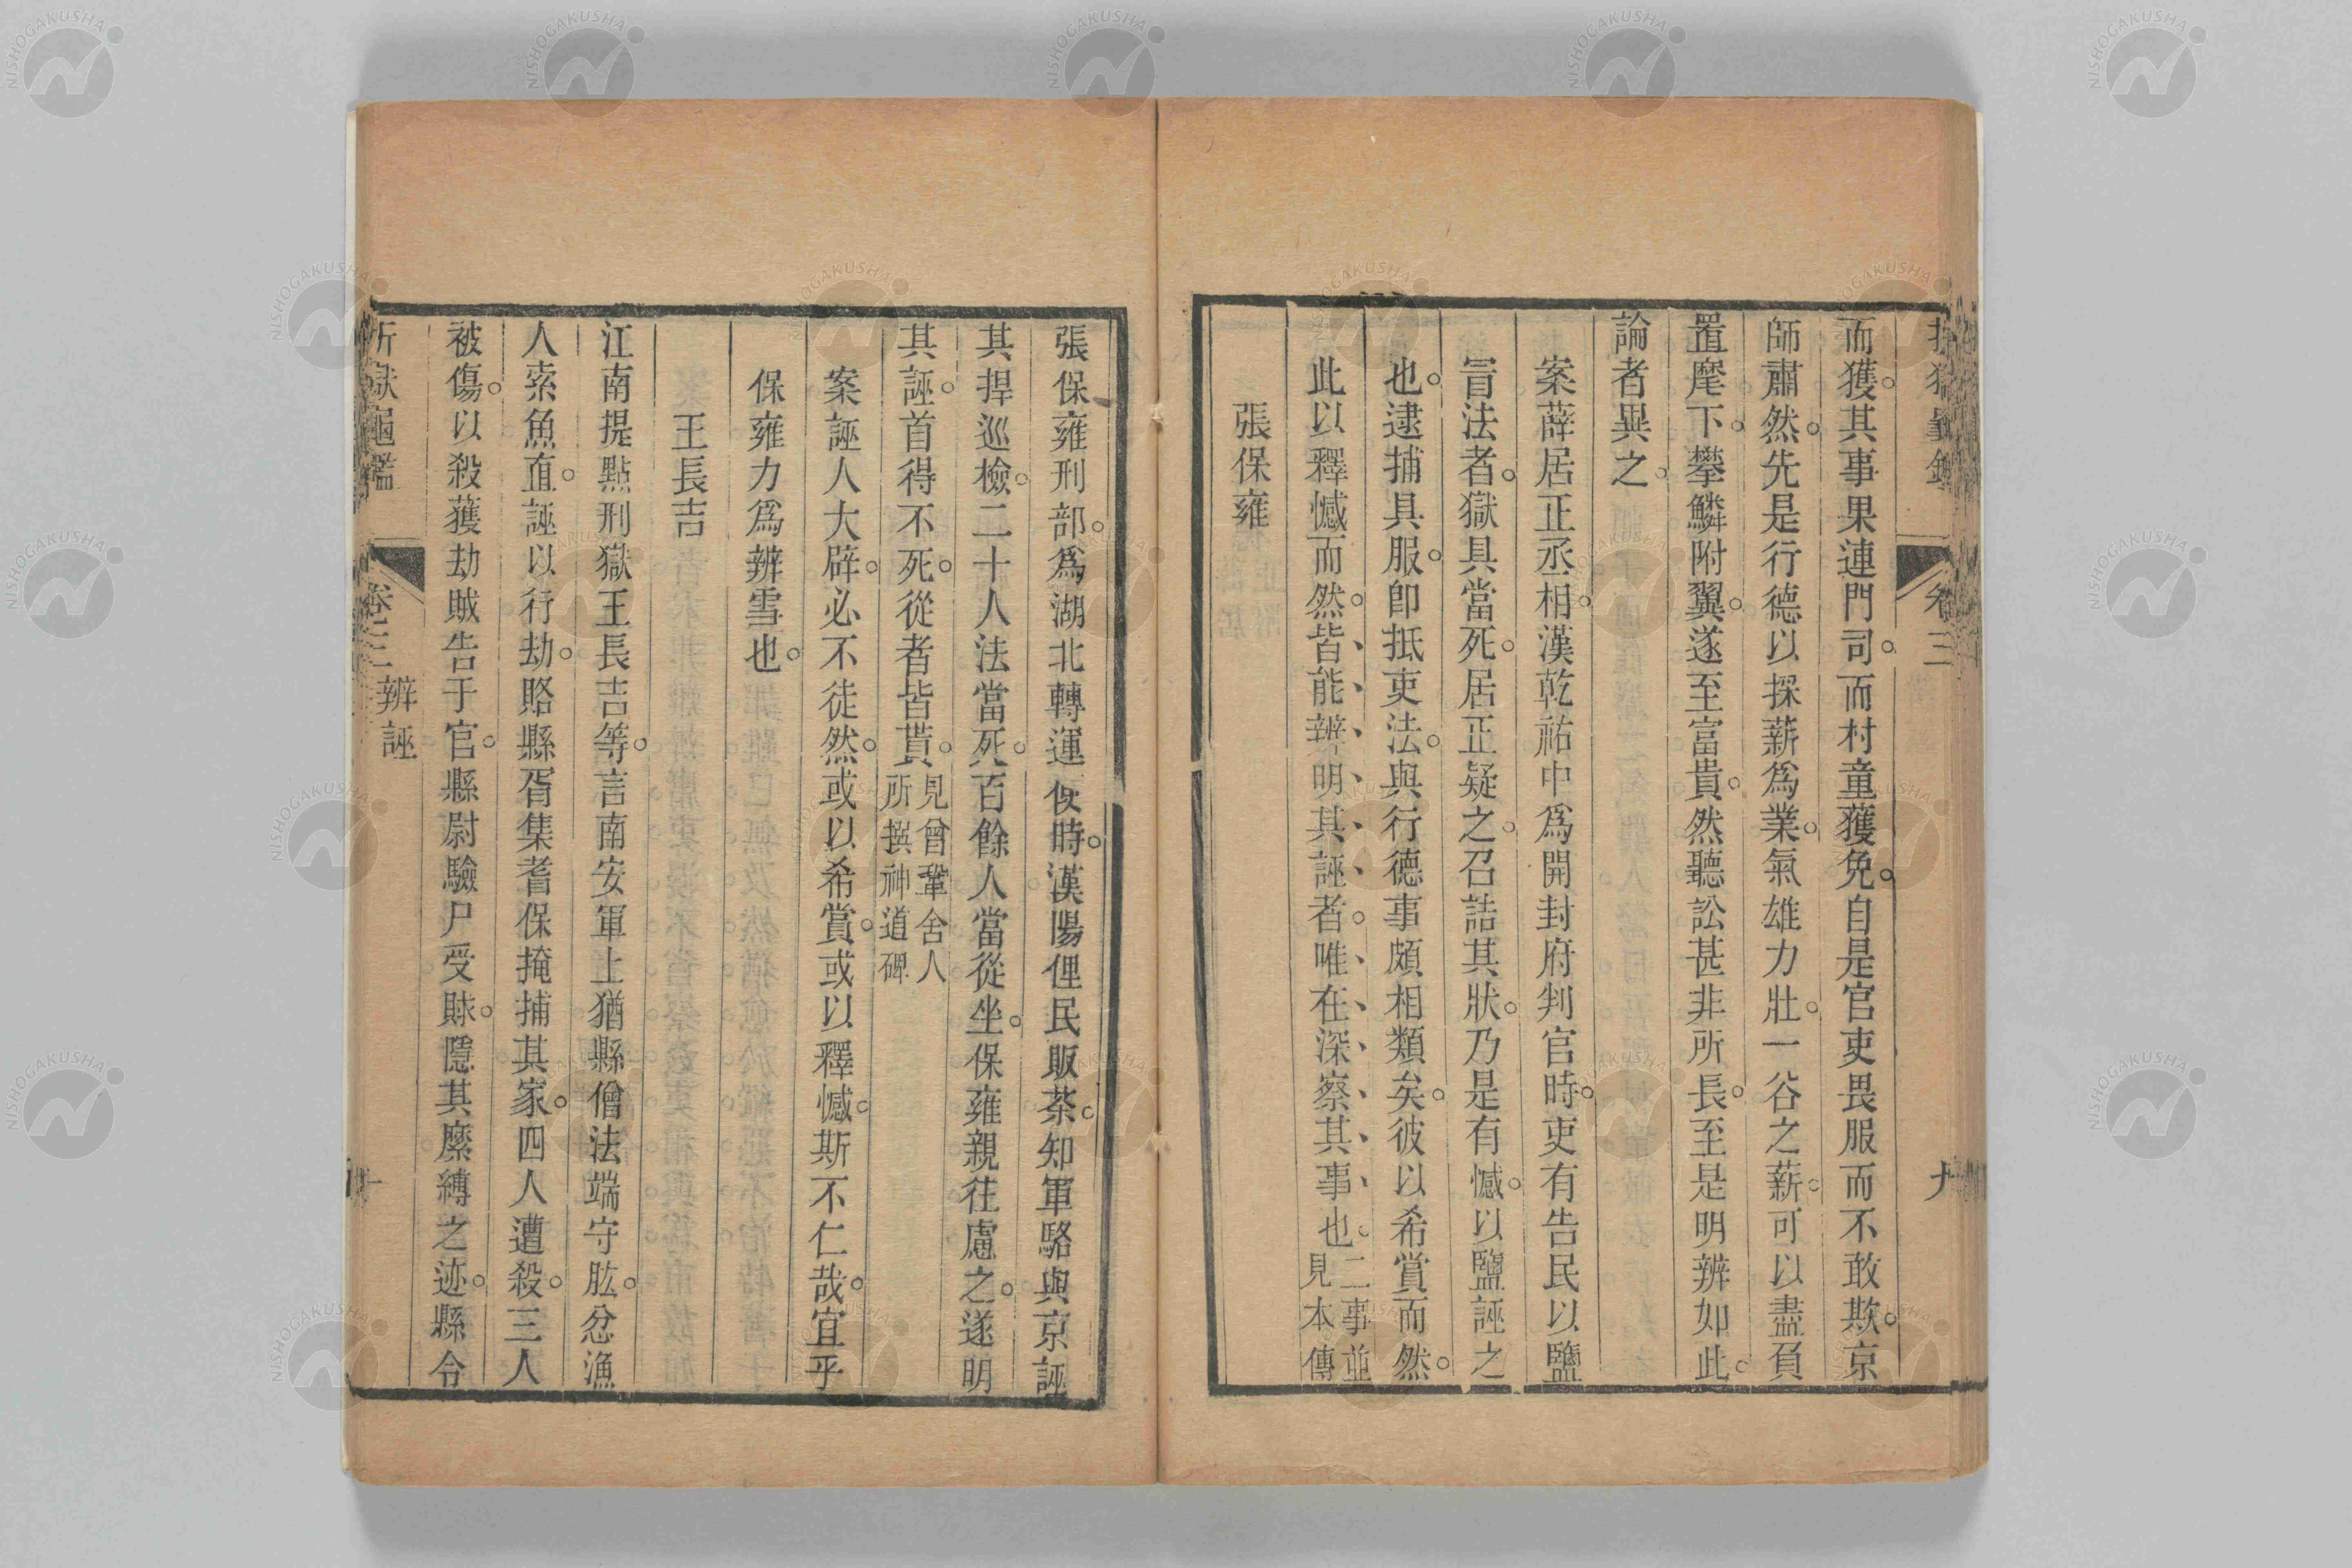 折獄龜鑑 卷三 九
而獲。其事果連門司。而村童獲免。自是官吏畏服而不敢欺。京
師肅然。先是行德以採薪爲業。氣雄力壯。一谷之薪。可以盡負
置麾下。攀鱗附翼。遂至富貴。然聽訟甚非所長。至是明辨如此。
論者異之。
案薛居正丞相。漢乾祐中爲開封府判官時。吏有告民以鹽
冒法者。獄具當死。居正疑之。召詰其狀。乃是有憾。以鹽誣之
也。逮捕具服。卽抵吏法。與行德事頗相類矣。彼以希賞而然。
此以釋憾而然。皆能辨明其誣者。唯在深察其事也。二事並見本傳
張保雍
張保雍刑部。爲湖北轉運使時。漢陽俚民販茶。知軍駱與京誣
其捍巡檢。二十人法當死。百餘人當從坐。保雍親往慮之。遂明
其誣。首得不死。從者皆貰。見曾鞏舍人所撰神道碑
案誣人大辟。必不徒然。或以希賞。或以釋憾。斯不仁哉。宜乎
保雍力爲辨雪也。
王長吉
江南提點刑獄王長吉等。言南安軍上猶縣僧法端守肱。忿漁
人索魚直。誣以行劫。賂縣胥集耆保掩捕其家。四人遭殺。三人
被傷。以殺獲劫賊告于官。縣尉驗尸受賕。隱其縻縛之迹。縣令
折獄龜鑑 卷三 辨誣 十
NISHOGAKUSHA